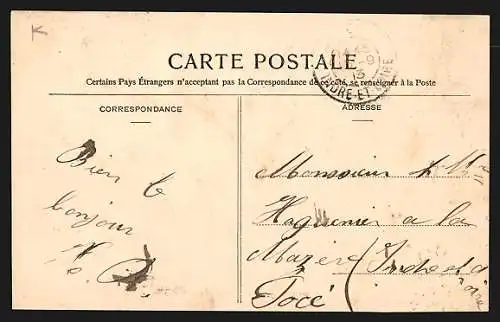 K
CARTE POSTALE
Certains Pays Étrangers n'acceptant pas la Correspondance de ce côté, se renseigner à la Poste
CORRESPONDANCE
ADRESSE
INDRE-ET-LOIRE
Bien le
bonjour
Monsieur
Haguenier a la
Mazère (Indre et Loire
Tocé